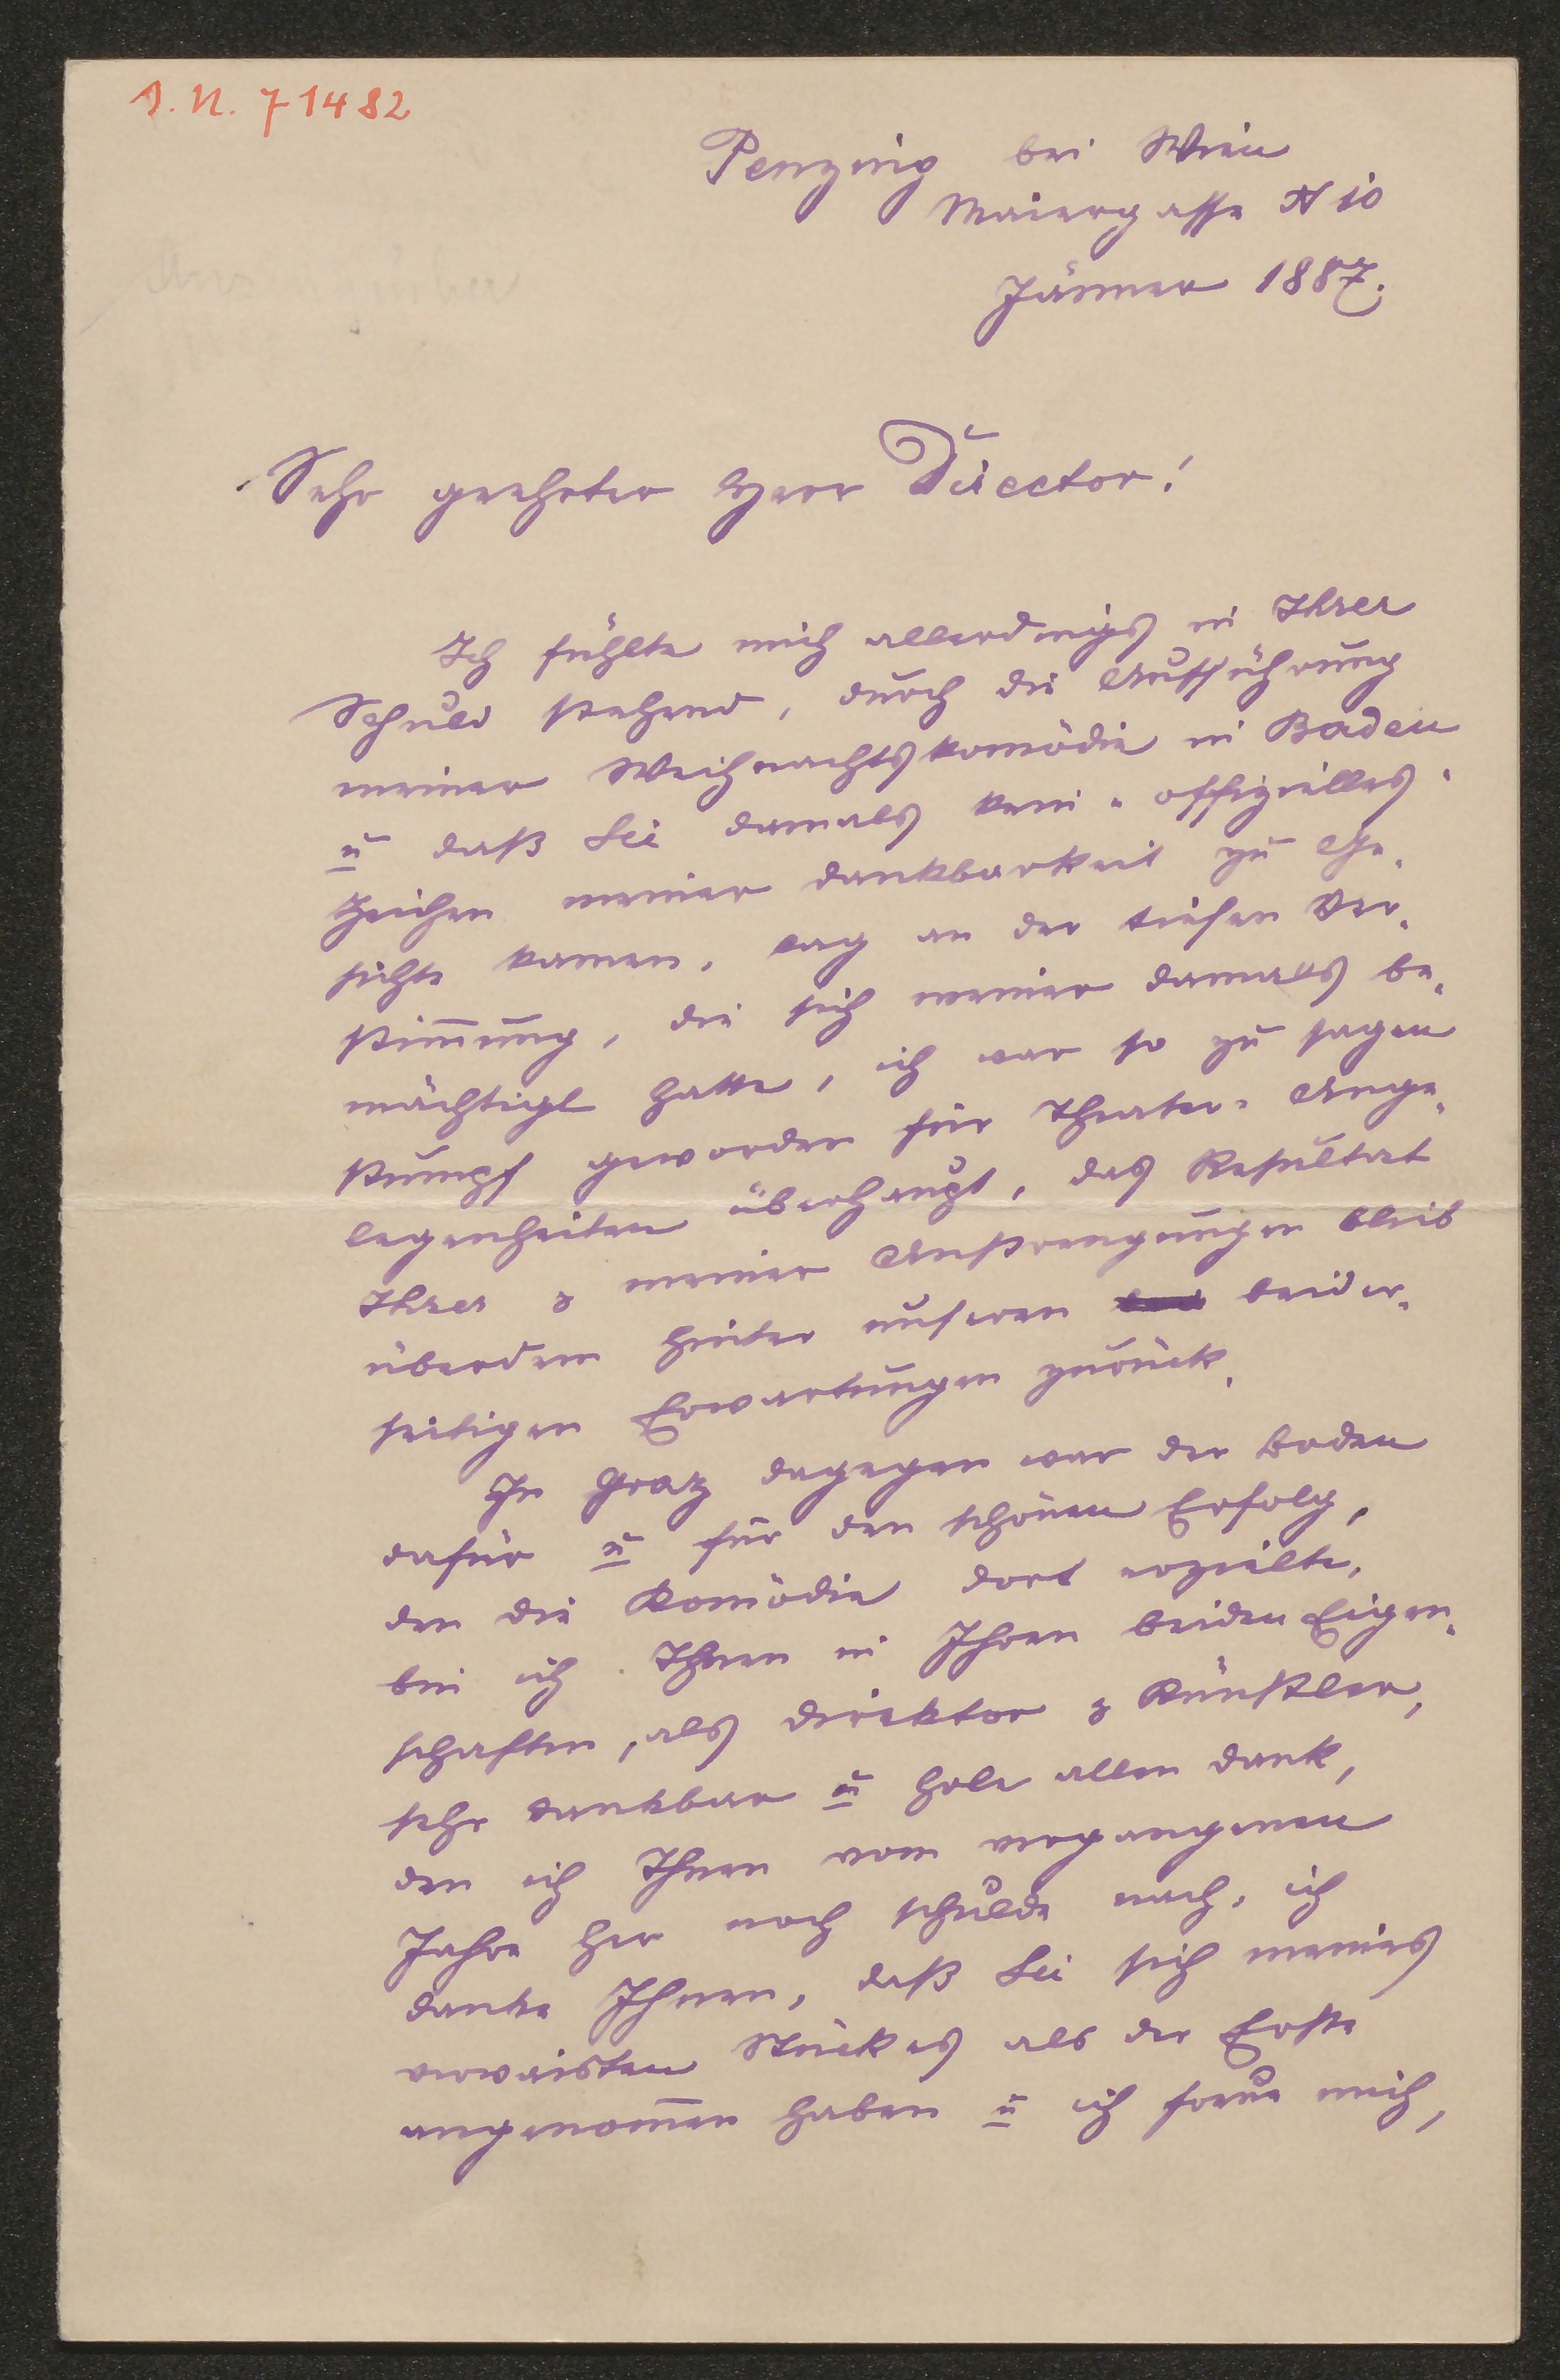 I.N. 71482
Penzing bei Wien
Maiergasse N 10
Jänner 1887.
Sehr geehrter Herr Director!
Ich fühlte mich allerdings in Ihrer
Schuld stehend, durch die Aufführung
meiner Weihnachtskomödie in Baden
u daß Sie damals kein "offizielles"
Zeichen meiner Dankbarkeit zu Ge-
sichte kamen, lag an der tiefen Ver-
stimmung, die sich meiner damals be-
mächtigt hatte, ich war so zu sagen
stumpf geworden für Theater-Ange-
legenheiten überhaupt, das Resultat
Ihrer & meiner Anstrengungen blieb
überdem hinter unseren beider-
seitigen Erwartungen zurück.
In Graz dagegen war der Boden
dafür u für den schönen Erfolg,
den die Komödie dort erzielte,
bin ich Ihnen in Ihren beiden Eigen-
schaften, als Direktor & Künstler,
sehr dankbar u hole allen Dank,
den ich Ihnen vom vergangenen
Jahre her noch schulde nach, ich
danke Ihnen, daß Sie sich meines
verwaisten Stückes als der Erste
angenommen haben u ich freue mich,